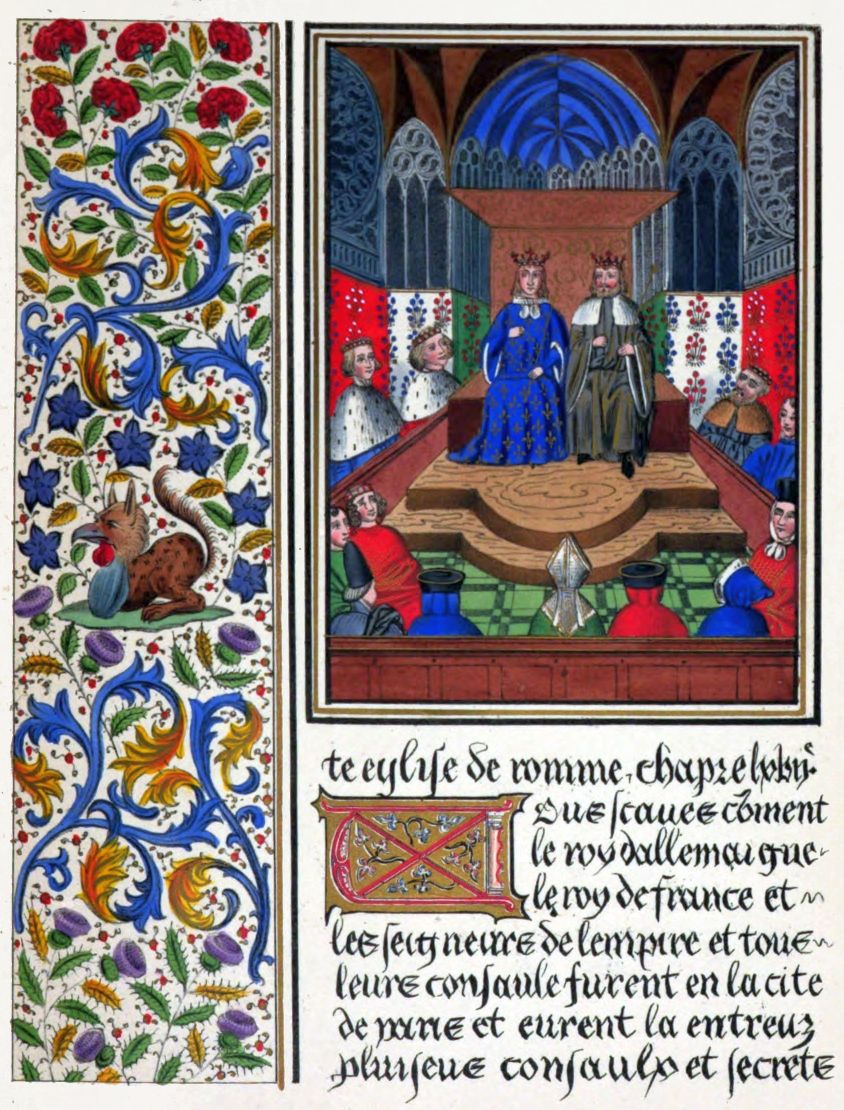 te eglise de romme. chapre
Vous scaues cōment
le roy dallemaigne
le roy de france et
les seigneurs de lempire et tous
leurs consauls furent en la cite
de paris et eurent la entreuz
pluiseus consaulx et secrets